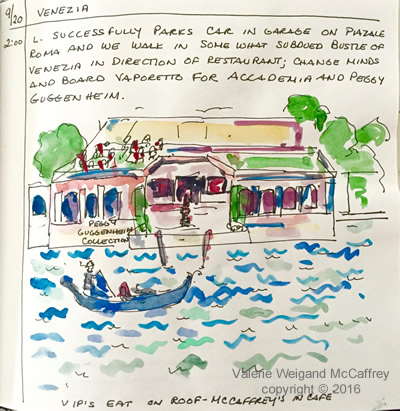 9/20 VENEZIA
2:00 L. SUCCESSFULLY PARKS CAR IN GARAGE ON PIAZALE
ROMA AND WE WALK IN SOMEWHAT SUBDUED BUSTLE OF
VENEZIA IN DIRECTION OF RESTAURANT; CHANGE MINDS
AND BOARD VAPORETTO FOR ACCADEMIA AND PEGGY
GUGGENHEIM.
PEGGY
GUGGENHEIM
COLLECTION
Valerie Weigand McCaffrey
copyright © 2016
VIP'S EAT ON ROOF - MCCAFFREY'S IN CAFE